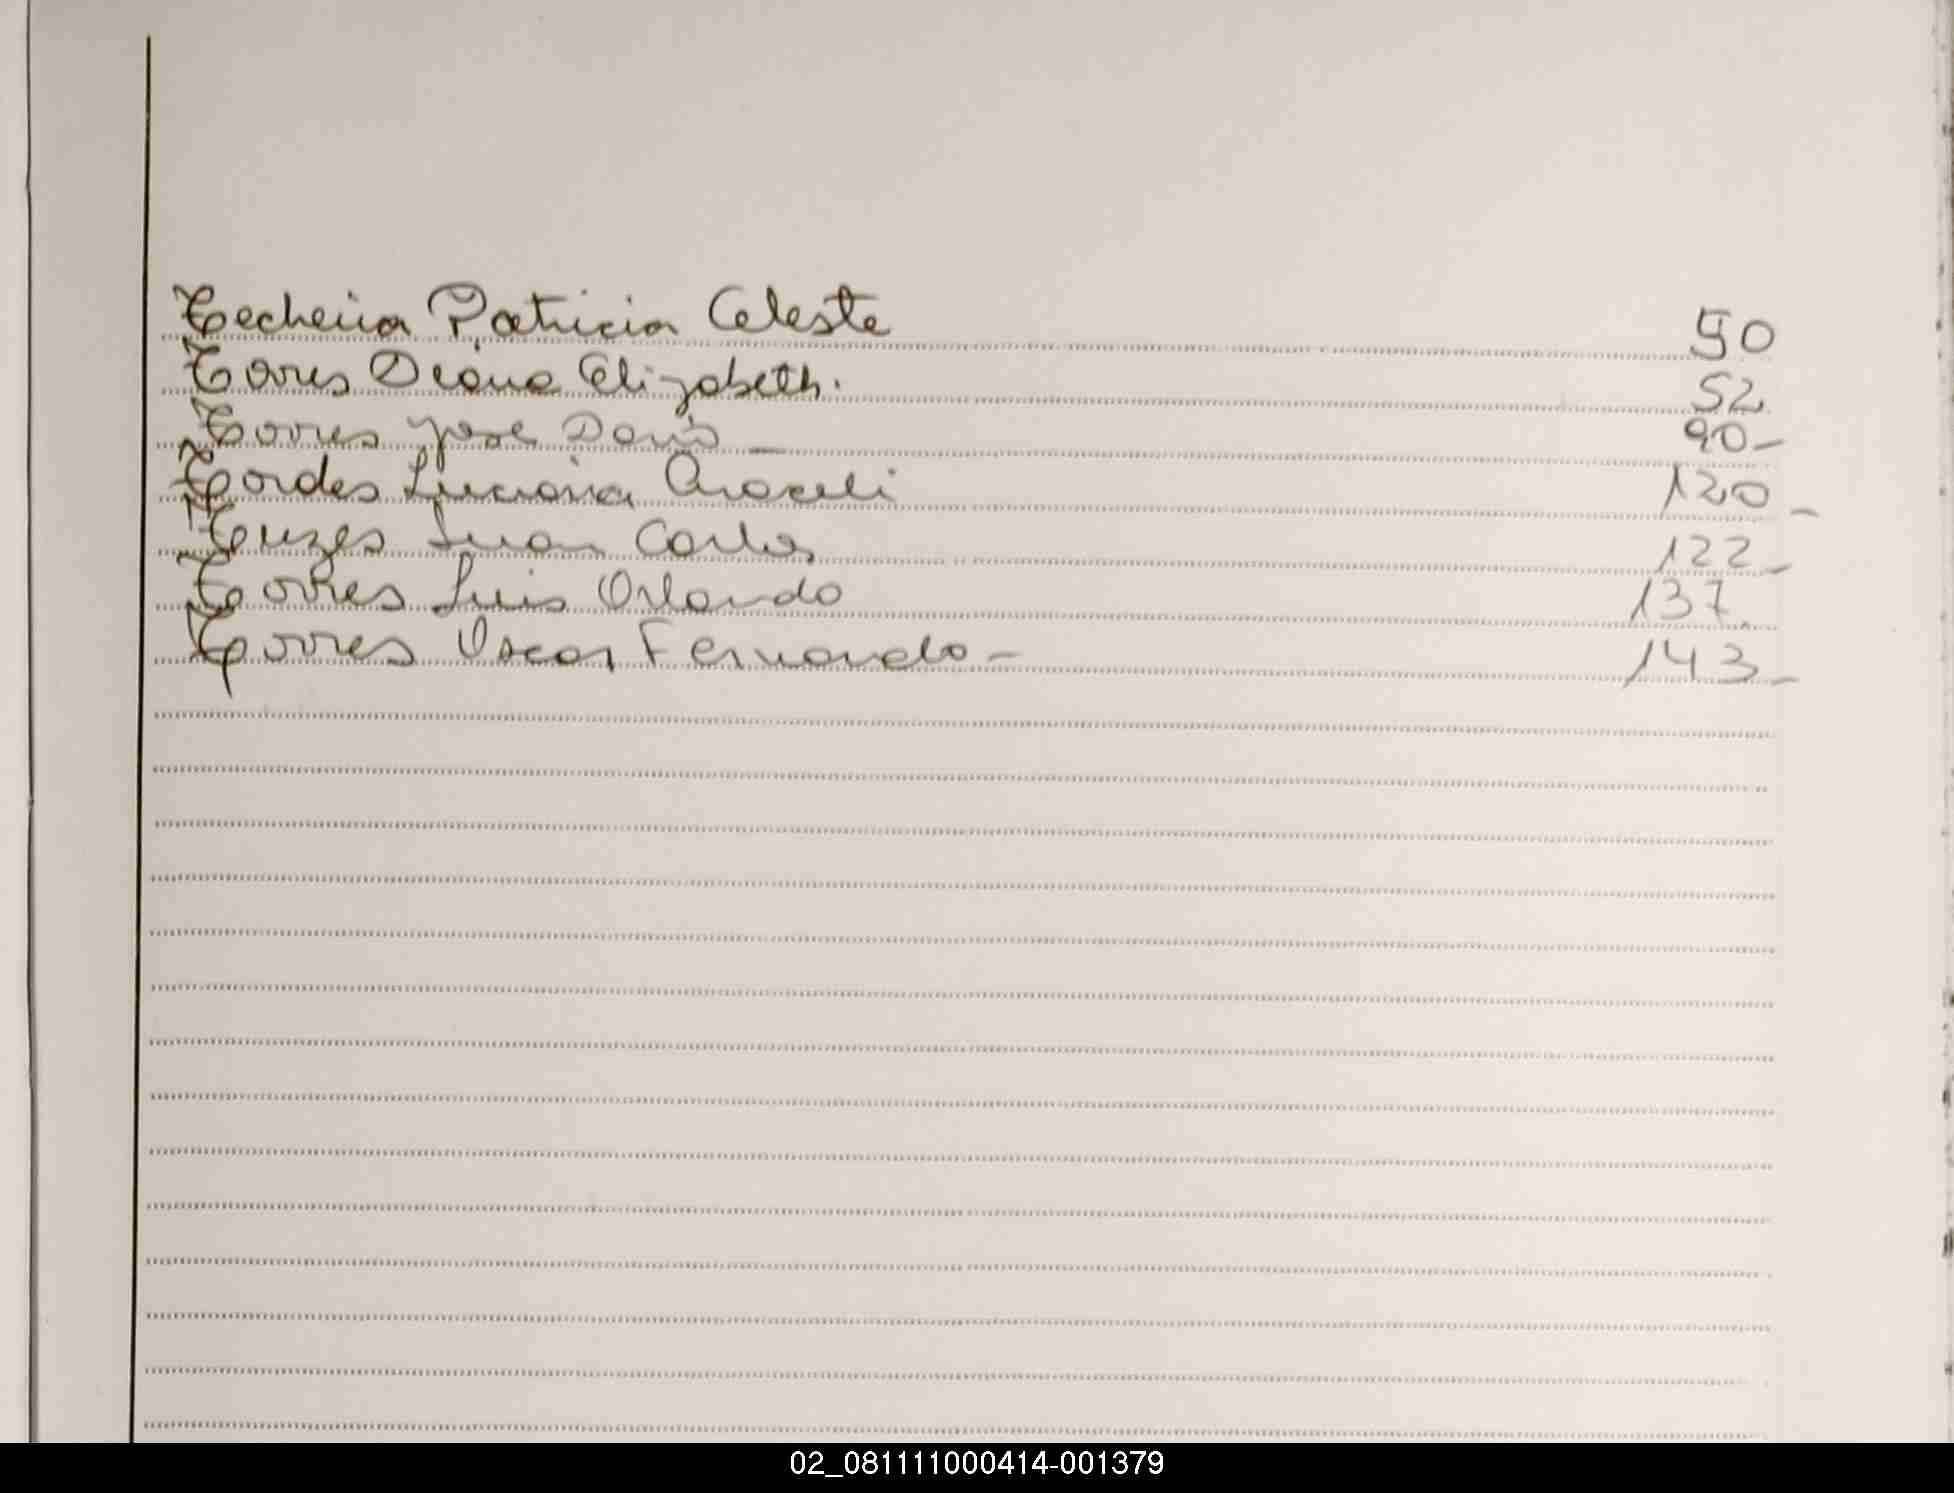 Techeira Patricia Celeste 50
Torres Diana Elizabeth. 52
Torres Jose Danis _ 90-
Tordes Luciana Araceli 120 -
Tuzes Juan Carlos 122-
Torres Luis Orlando 137.
Torres Oscar Fernando - 143-
02_081111000414-001379